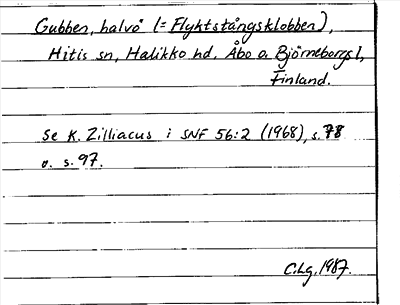 Gubben, halvö (= Flyktstångsklobben),
Hitis sn, Halikko hd. Åbo o. Björneborgs l,
Finland.
Se K. Zilliacus i SNF 56:2 (1968), s. 78
o. s. 97.
C.Lg. 1987.